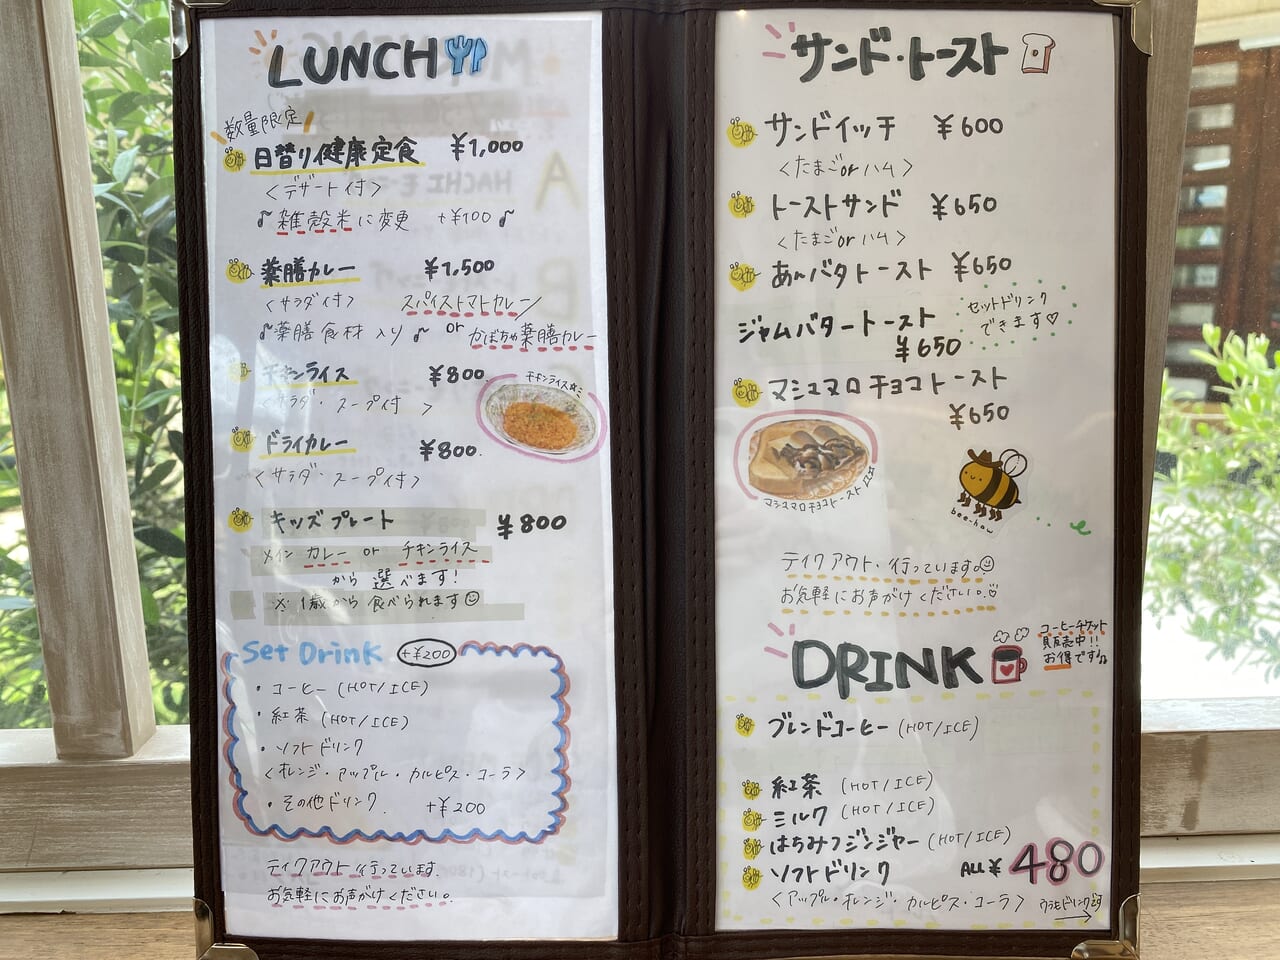 LUNCH
数量限定
日替り健康定食 ¥1,000
<デザート付>
♪雑穀米に変更 +¥100♪
薬膳カレー ¥1,500
<サラダ付> スパイストマトカレー
♪薬膳食材入り♪ or かぼちゃ薬膳カレー
チキンライス ¥800
<サラダ・スープ付>
チキンライス☆ミ
ドライカレー ¥800.
<サラダ・スープ付>
キッズプレート ¥800
メイン カレー or チキンライス
から選べます!
※1歳から食べられます☺
Set Drink +¥200
・コーヒー (HOT/ICE)
・紅茶 (HOT/ICE)
・ソフトドリンク
<オレンジ・アップル・カルピス・コーラ>
・その他ドリンク +¥200
テイクアウト行っています.
お気軽にお声がけください。
サンド・トースト
サンドイッチ ¥600
<たまごorハム>
トーストサンド ¥650
<たまごorハム>
あ〜バタトースト ¥650
セットドリンク
できます♡
ジャムバタートースト
¥650
マシュマロチョコトースト
¥650
マシュマロチョコトースト
bee-how
テイクアウト・行っています。☺
お気軽にお声がけください。♡
DRINK
コーヒーチケット
販売中!!
お得です♪
ブレンドコーヒー (HOT/ICE)
紅茶 (HOT/ICE)
ミルク (HOT/ICE)
はちみつジンジャー (HOT/ICE)
ソフトドリンク ALL¥480
<アップル・オレンジ・カルピス・コーラ>
ウラもドリンクです
→